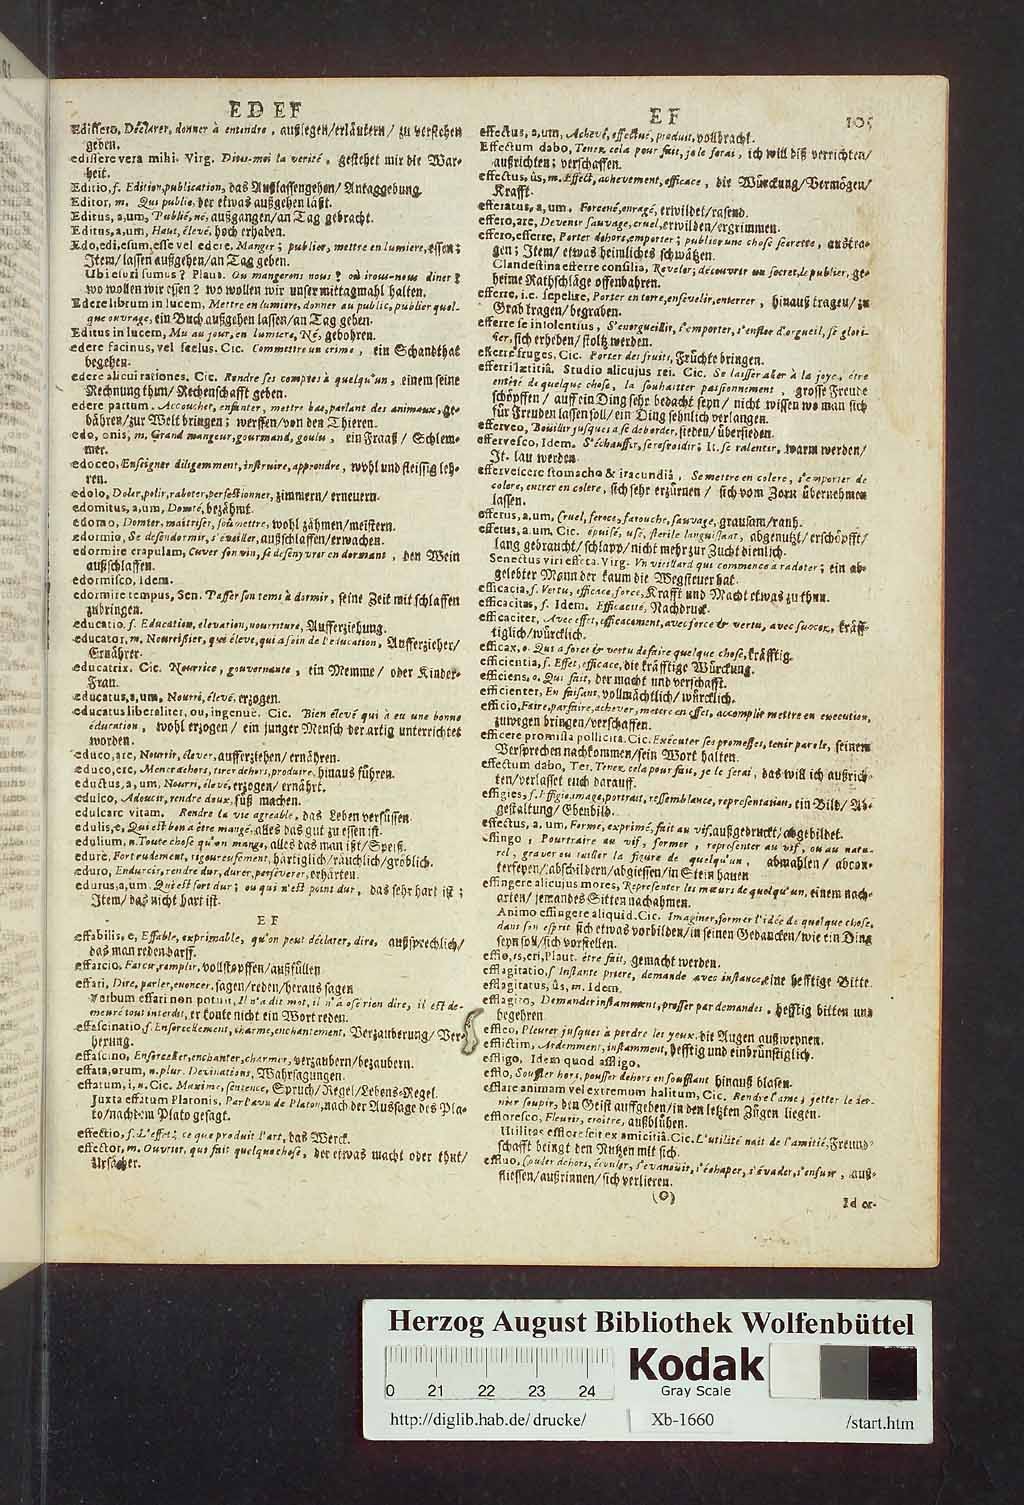 ED EF
Edissero, Déclarer, donner à entendre, außlegen/erläutern/ zu verstehen
geben.
edissere vera mihi. Virg. Dites-moi la verité, gestehet mir die War-
heit.
Editio, f. Edition, publication, das Außlassengehen/
Editor, m. Qui publie, der etwas außgehen läßt.
Editus, a, um, Publié, né, außgangen/an Tag gebracht.
Editus, a, um, Haut, élevé, hoch erhaben.
Edo, edi, esum, esse vel edere, Manger; publier, mettre en lumiere, essen;
Item/lassen außgehen/an Tag geben.
Ubi esuri sumus? Plaut. Ou mangerons nous? où irous-nous diner?
wo wollen wir essen? wo wollen wir unser mittagmahl halten.
Edere librum in lucem, Mettre en lumiere, donner au public, publier quel-
que ouvrage, ein Buch außgehen lassen/an Tag geben.
Editus in lucem, Mis au jour, en lumiere, Né, gebohren.
edere facinus, vel scelus. Cic. Commettre un crime, ein Schandthat
begehen.
edere alicui rationes. Cic. Rendre ses comptes à quelqu'un, einem seine
Rechnung thun/Rechenschafft geben.
edere partum. Accoucher, enfanter, mettre bas, parlant des animaux, ge-
bähren/zur Welt bringen; werffen/von den Thieren.
edo, onis, m. Grand mangeur, gourmand, goulu, ein Fraaß/ Schlem-
mer.
edoceo, Enseigner diligemment, instruire, apprendre, wohl und fleissig leh-
ren.
edolo, Doler, polir, raboter, perfectionner, zimmern/ erneuern.
edomitus, a, um, Domté, bezähmt.
edomo, Domter, maitriser, soumettre, wohl zähmen/meistern.
edormio, Se desendormir, s'éveiller, außschlaffen/erwachen.
edormire crapulam, Cuver son vin, se desenyvrer en dormant, den Wein
außschlaffen.
edormisco, Idem.
edormire tempus, Sen. Passer son tems à dormir, seine Zeit mit schlaffen
zubringen.
educatio, f. Education, elevation, nourriture, Aufferziehung.
educator, m. Nourrissier, qui éleve, qui a soin de l'education, Aufferzieher/
Ernährer.
educatrix. Cic. Nourrice, gouvernante, ein Memme/ oder Kinder-
Frau.
educatus, a, um, Nourri, élevé, erzogen.
educatus liberaliter, ou, ingenuè. Cic. Bien élevé qui à eu une bonne
éducation, wohl erzogen/ ein junger Mensch der artig unterrichtet
worden.
educo, are, Nourrir, élever, aufferziehen/ ernähren.
educo, ere, Mener dehors, tirer dehors, produire, hinaus führen.
eductus, a, um, Nourri, élevé, erzogen/ ernährt.
edulco, Adoucir, rendre doux, süß machen.
edulcare vitam. Rendre la vie agreable, das Leben versüssen.
edulis, e, Qui est bon à être mangé, alles das gut zu essen ist.
edulium, n. Toute chose qu'on mange, alles das man ißt/ Speiß.
edurè, Fort rudement, rigoureusement, härtiglich/räuchlich/gröblich.
eduro, Endurcir, rendre dur, durer, perseverer, erhärten.
edurus, a, um, Qui est fort dur; ou qui n'est point dur, das sehr hart ist;
Item/das nicht hart ist.
EF
effabilis, e, Effable, exprimable, qu'on peut déclarer, dire, außsprechlich/
das man reden darff.
effarcio, Farcir, remplir, vollstopffen/außfüllen
effari, Dire, parler, enoncer, sagen/reden/heraus sagen
Verbum effari non potuit, Il n'a dit mot, il n'a osé rien dire, il est de-
meuré tout interdit, er konte nicht ein Wort reden.
effascinatio, f. Ensorcellement, charme, enchantement, Verzauberung/ Ver-
hexung.
effascino, Ensorceller, enchanter, charmer, verzaubern/bezaubern.
effata, orum, n. plur. Devinations, Wahrsagungen.
effatum, i, n. Cic. Maxime, sentence, Spruch/Regel/Lebens-Regel.
Juxta effatum Platonis, Par l'avis de Platon, nach der Aussage des Pla-
to/nach dem Plato gesagt.
effectio, f. L'effet; ce que produit l'art, das Werck.
effector, m. Ouvrier, qui fait quelque chose, der etwas macht oder thut/
Ursächer.
EF 105
effectus, a, um, Achevé, effectué, produit, vollbracht.
Effectum dabo, Tenez cela pour fait, je le ferai, ich will diß verrichten/
außrichten; verschaffen.
effectus, ûs, m. Effect, achevement, efficace, die Würckung/Vermögen/
Krafft.
efferatus, a, um, Forcené, enragé, erwildet/rasend.
effero, are, Devenir sauvage, cruel, erwilden/ergrimmen.
effero, efferre, Porter dehors, emporter; publier une chose secrette, austra-
gen; Item/ etwas heimliches schwätzen.
Clandestina efferre consilia, Reveler; découvrir un secret, le publier, ge-
heime Rathschläge offenbahren.
efferre, i.e. sepelire, Porter en terre, ensevelir, enterrer, hinauß tragen/ zu
Grab tragen/begraben.
efferre se insolentius, S'enorgueillir, s'emporter, s'enfler d'orgueil, se glori-
fier, sich erheben/stoltz werden.
efferre fruges, Cic. Porter des fruits, Früchte bringen.
efferri lætitiâ, Studio alicujus rei. Cic. Se laisser aller à la joye, être
entêté de quelque chose, la souhaitter passionnement, grosse Freude
schöpffen/ auff ein Ding sehr bedacht seyn/ nicht wissen wo man sich
für Freuden lassen soll/ein Ding sehnlich verlangen.
efferveo, Bouillir jusques à se deborder, sieden/übersieden.
effervesco, Idem. S'échauffer, se refroidir; It. se ralentir, warm werden/
It. lau werden.
effervescere stomacho & iracundiâ, Se mettre en colere, s'emporter de
colere, entrer en colere, sich sehr erzürnen/ sich vom Zorn übernehmen
lassen.
efferus, a, um, Cruel, feroce, farouche, sauvage, grausam/rauh.
effetus, a, um, Cic. épuisé, usé, sterile languissant, abgenutzt/erschöpfft/
lang gebraucht/schlapp/nicht mehr zur Zucht dienlich.
Senectus viri effeta. Virg. Un vieillard qui commence a radoter; ein ab-
gelebter Mann der kaum die Wegsteuer hat.
efficacia, f. Vertu, efficace, force, Krafft und Macht etwas zu thun.
efficacitas, f. Idem. Efficacité, Nachdruck.
efficaciter, Avec effet, efficacement, avec force & vertu, avec succez, kräff-
tiglich/würcklich.
efficax, o. Qui a force & vertu de faire quelque chose, kräfftig.
efficientia, f. Effet, efficace, die kräfftige Würckung.
efficiens, o. Qui fait, der macht und verschafft.
efficienter, En faisant, vollmächtlich/würcklich.
efficio, Faire, parfaire, achever, mettre en effet, accomplir mettre en execution,
zuwegen bringen/verschaffen.
efficere promissa pollicita. Cic. Exécuter ses promesses, tenir parole, seinem
Versprechen nachkommen/sein Wort halten.
effectum dabo, Ter. Tenez cela pour fait, je le ferai, das will ich außrich-
ten/verlasset euch darauff.
effigies, f. Effigie, image, portrait, ressemblance, representation, ein Bild/ Ab-
gestaltung/Ebenbild.
effictus, a, um, Forme, exprimé, fait au vif, außgedruckt/abgebildet.
effingo, Pourtraire au vif, former, representer au vif, ou au natu-
rel, graver ou tailler la figure de quelqu'un, abmahlen/ abcon-
terfeyen/abschildern/abgiessen/in Stein hauen
effingere alicujus mores, Representer les mœurs de quelqu'un, einem nach-
arten/jemandes Sitten nachahmen.
Animo effingere aliquid. Cic. Imaginer, former l'idée de quelque chose,
dans son esprit sich etwas vorbilden/in seinen Gedancken/wie ein Ding
seyn soll/sich vorstellen.
effio, is, eri, Plaut. être fait, gemacht werden.
efflagitatio, f. Instante priere, demande avec instance, eine hefftige Bitte.
efflagitatus, ûs, m. Idem.
efflagito, Demander instamment, presser par demandes, hefftig bitten und
begehren
effleo, Pleurer jusques à perdre les yeux, die Augen außweynen.
efflictim, Ardemment, instamment, hefftig und einbrünstiglich.
effligo, Idem quod affligo.
efflo, Souffler hors, pousser dehors en soufflant hinauß blasen.
efflare animam vel extremum halitum, Cic. Rendre l'ame; jetter le der-
nier soupir, den Geist auffgeben/in den letzten Zügen liegen.
effloresco, Fleurir, croitre, außblühen.
Utilitas efflorescit ex amicitiâ. Cic. L'utilité nait de l'amitié, Freund-
schafft bringt den Nutzen mit sich.
effluo, Couler dehors, écouler, s'evanoüir, s'échaper, s'évader, s'enfuir, auß-
fliessen/außrinnen/sich verlieren.
(O)
Id ex-
Herzog August Bibliothek Wolfenbüttel
0 21 22 23 24
Kodak
Gray Scale
http://diglib.hab.de/drucke/ Xb-1660 /start.htm